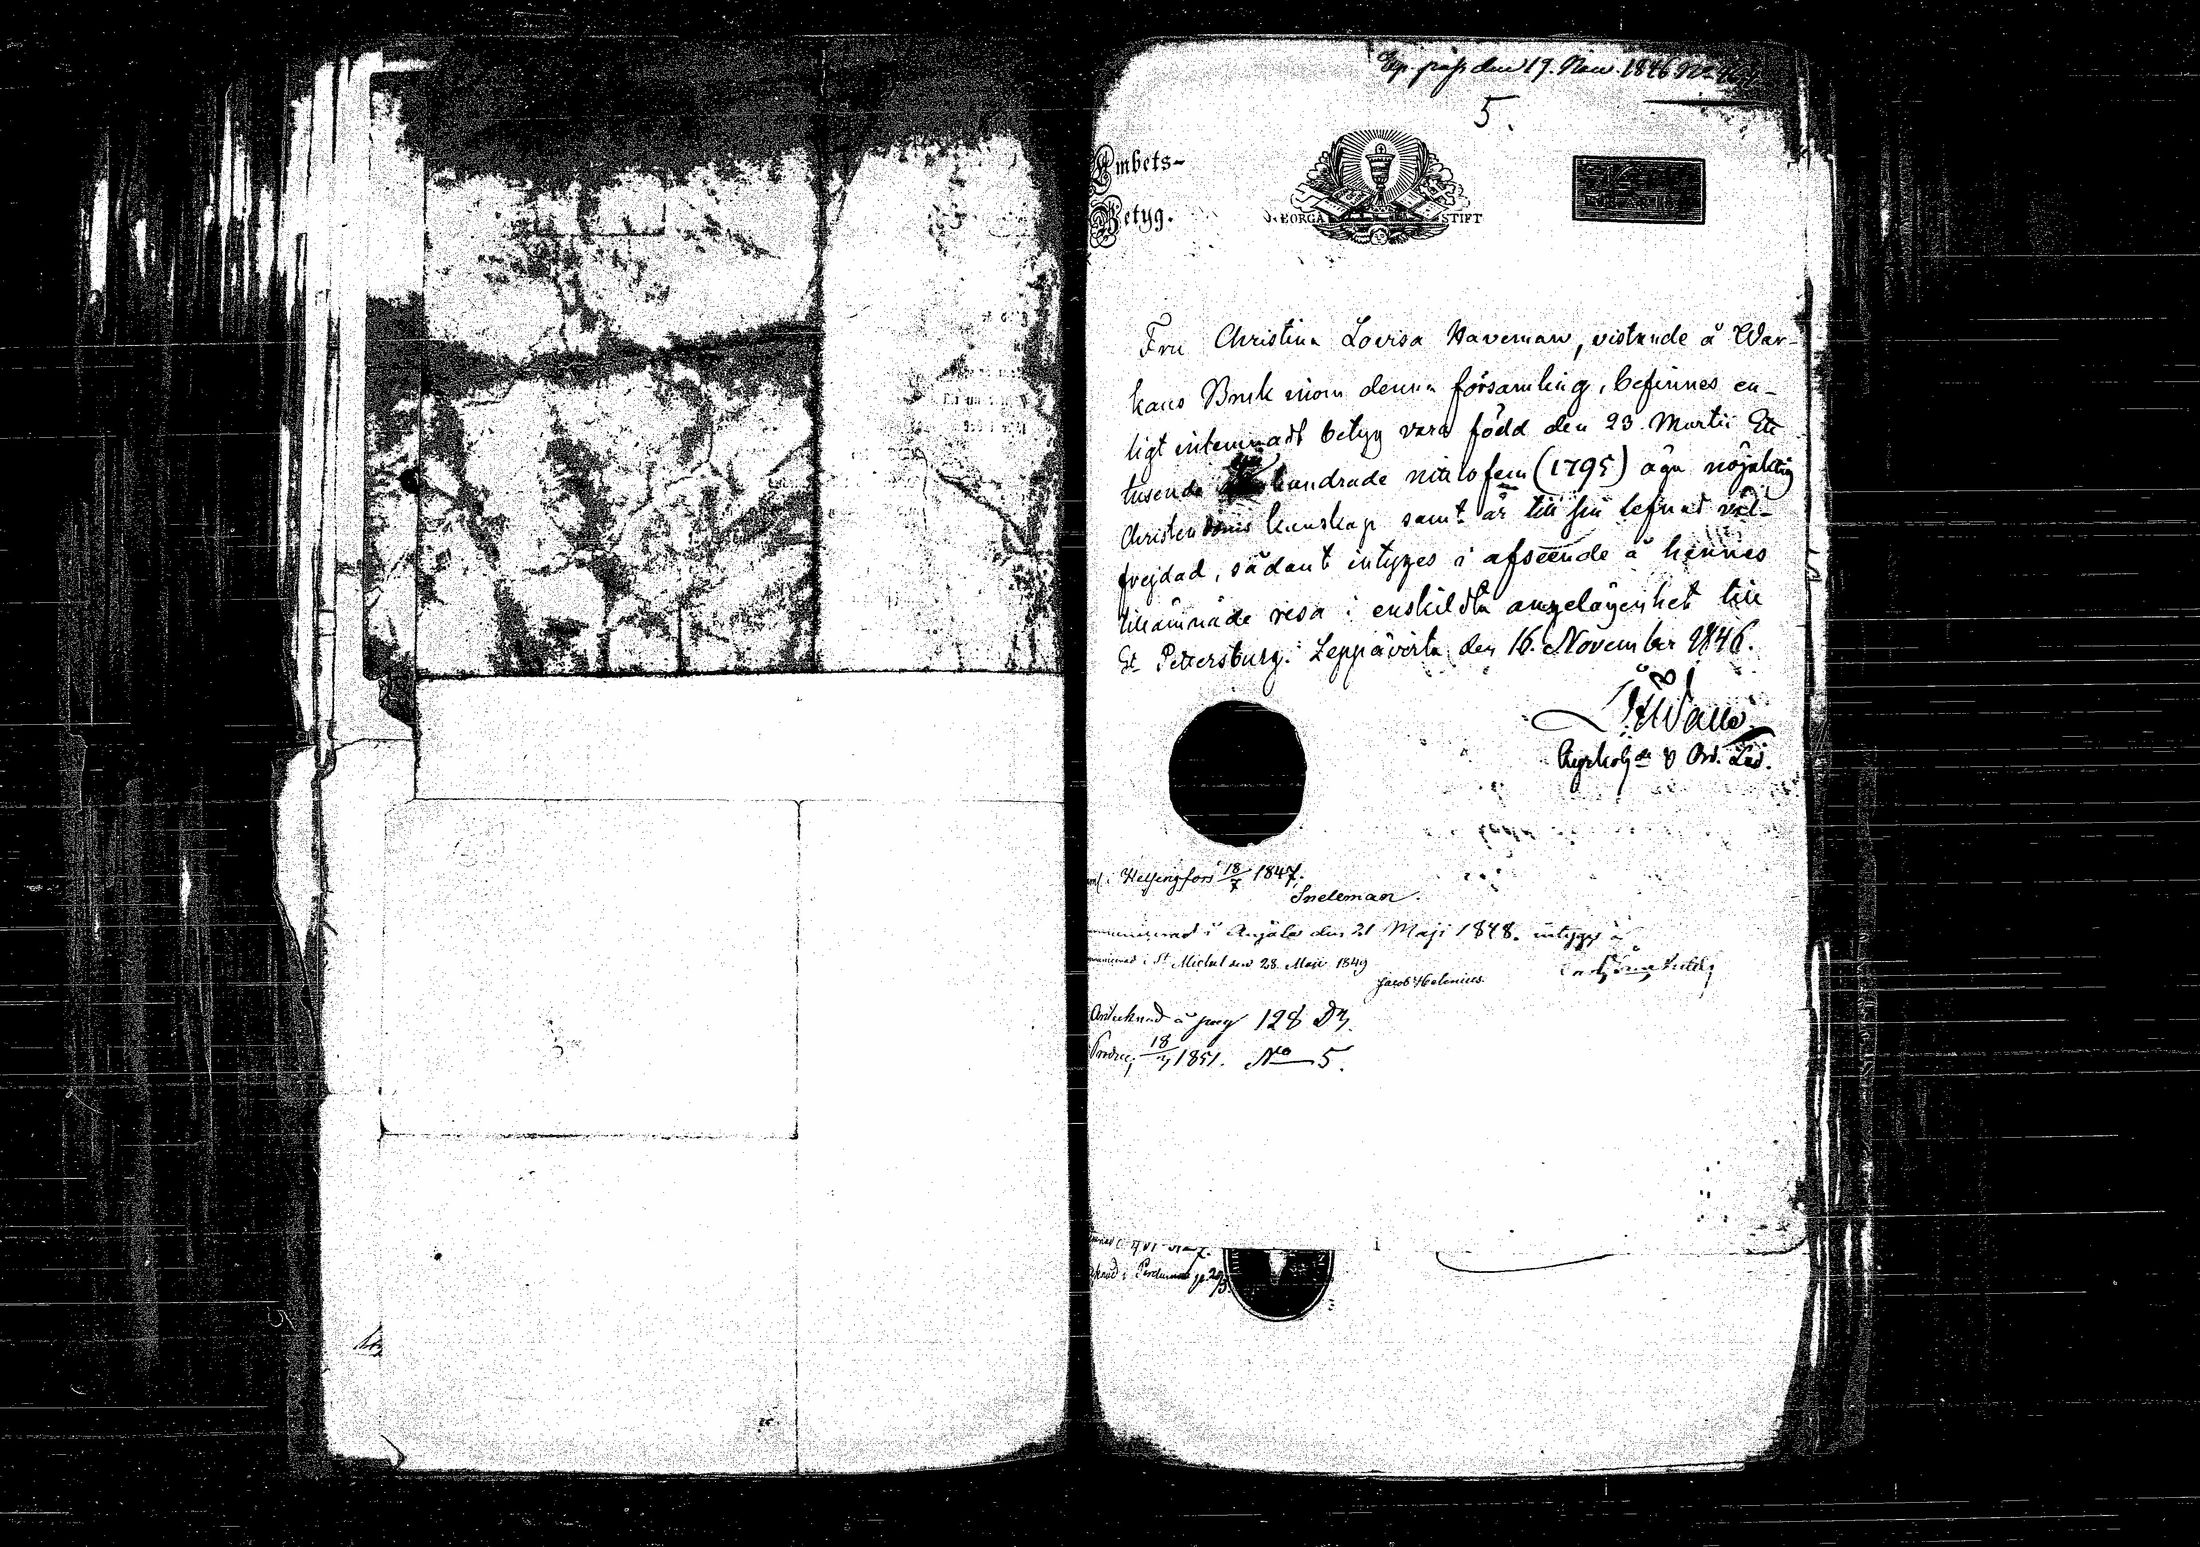 Exp. pass den 19. Nov. 1846 No
5.
Embets-
Betyg.
BORGÅ STIFT
Fru Christina Lovisa Haveman, vistande å War-
kaus Bruk inom denna församling, befinnes en-
ligt intemnadt betyg vara född den 23 Martii Ett
tusende hundrade nittiofem (1795) äga nöjaktig
Christendoms kunskap samt är till sin lefnad väl-
frejdad, sådant intyges i afseende å hennes
tillämnade resa i enskildta angelägenhet till
St Petersburg. Leppävirta den 16. November 1846.
Kyrkoh
i Helsingfors 18/7 1847.
Sneleman.
i Anjala den 21 Maji 1848. intygar
i St Michel den 28. Maii 1849
Jacob Helenius.
Antecknad å pag 128
18/7 1851. No 5.